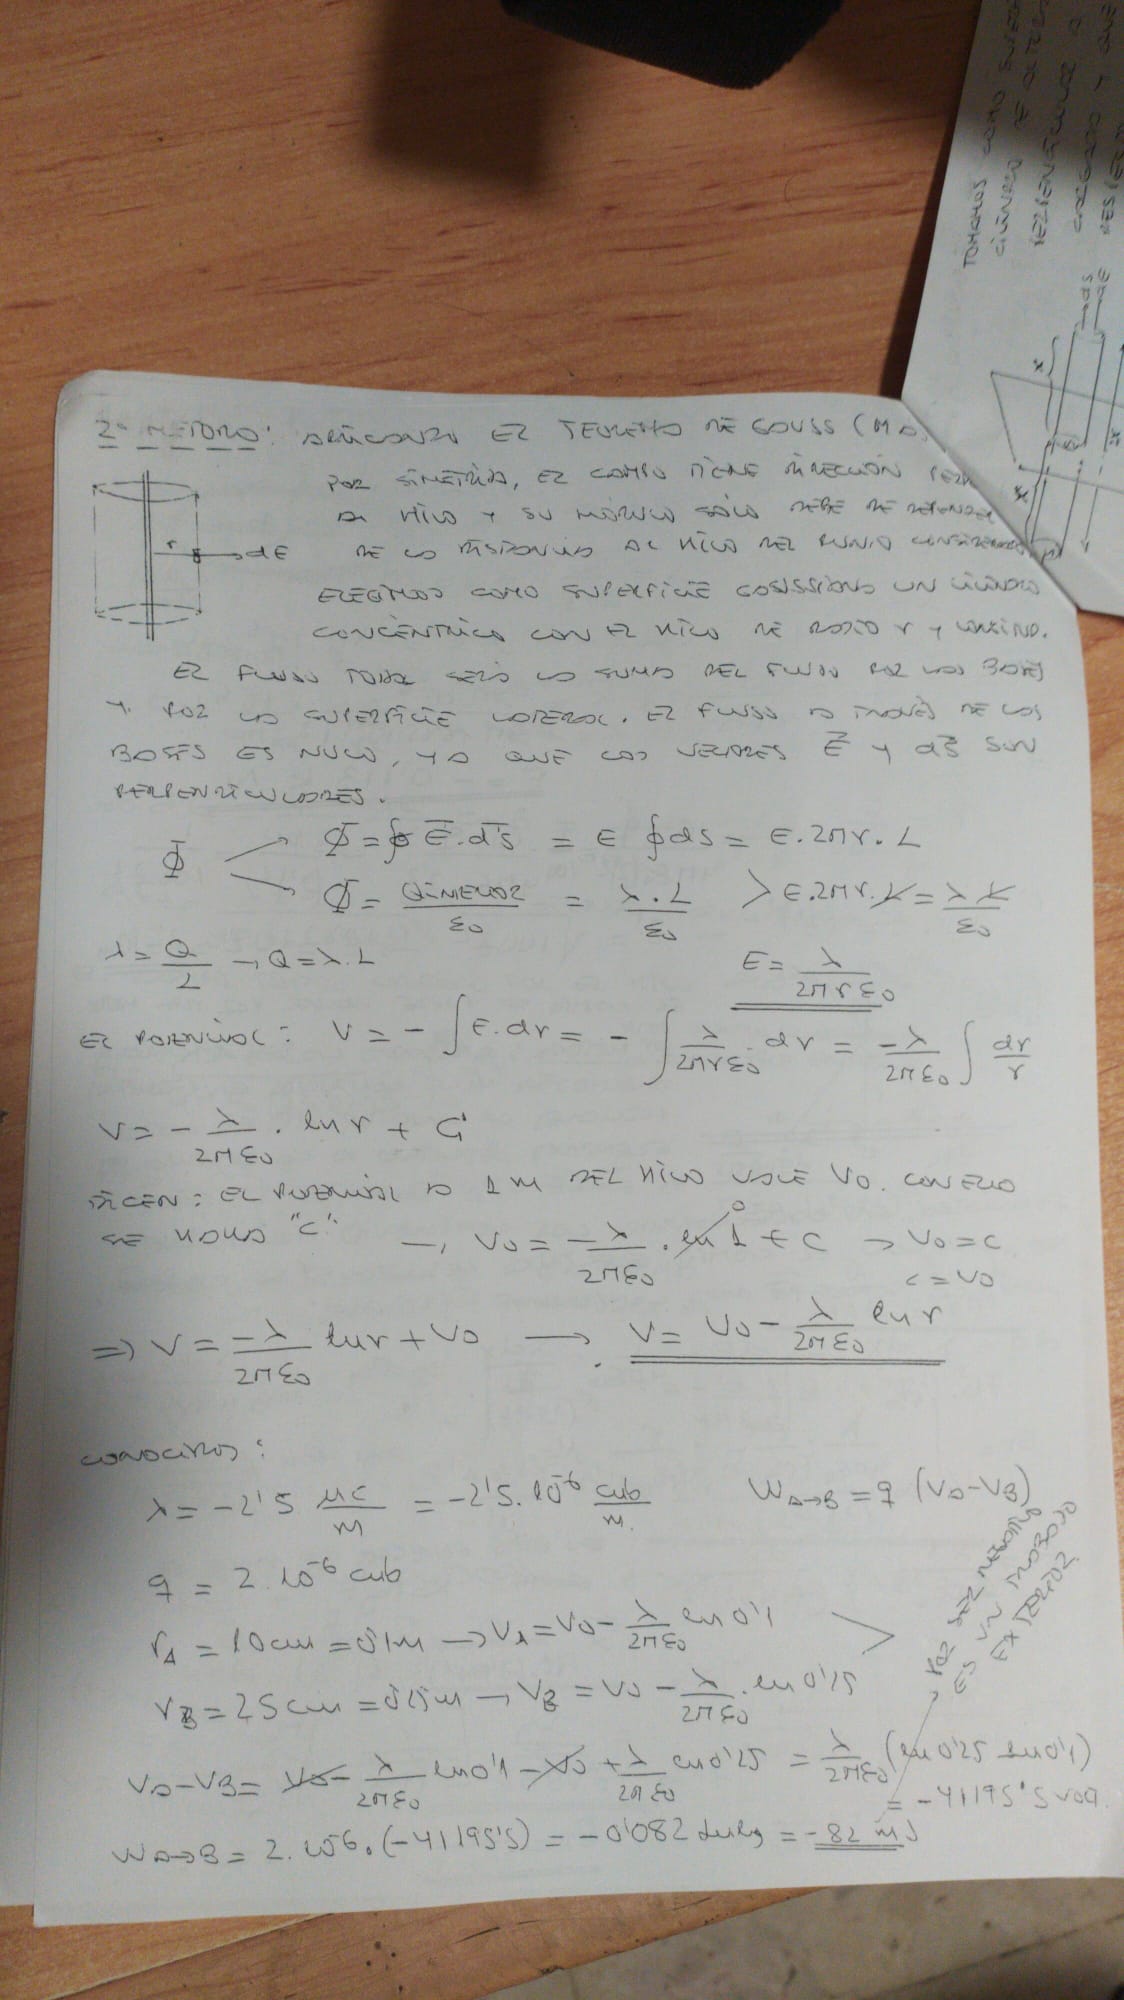 2º METODO: APLICANDO EL TEOREMA DE GAUSS (MA
POR SIMETRIA, EL CAMPO TIENE DIRECCIÓN PERP
AL HILO Y SU MÓDULO SÓLO DEBE DE DEPENDER
DE LA DISTANCIA AL HILO DEL PUNTO CONSIDERADO
r dE
ELEGIMOS COMO SUPERFICIE GAUSSIANA UN CILINDRO
CONCÉNTRICO CON EL HILO DE RADIO r Y LONGITUD.
EL FLUJO TOTAL SERÁ LA SUMA DEL FLUJO POR LAS BASES
Y POR LA SUPERFICIE LATERAL. EL FLUJO A TRAVÉS DE LAS
BASES ES NULO, YA QUE LOS VECTORES E⃗ Y dS⃗ SON
PERPENDICULARES.
Φ Φ = ∮ E⃗.dS⃗ = E ∮ dS = E.2πr.L
Φ = Q INTERIOR / ε0 = λ.L / ε0 > E.2πr.L = λ L / ε0
λ = Q/L → Q = λ.L E = λ / 2πrε0
EL POTENCIAL: V = - ∫ E.dr = - ∫ λ/2πrε0 . dr = -λ/2πε0 ∫ dr/r
V = - λ/2πε0 . ln r + C
DICEN: EL POTENCIAL A 1m DEL HILO VALE V0. CON ELLO
SE HALLA "C": → V0 = -λ/2πε0 . ln 1 + C → V0 = C
0
C = V0
⇒ V = -λ/2πε0 ln r + V0 → V = V0 - λ/2πε0 ln r
CONOCIDOS:
λ = -2'5 μC/m = -2'5.10⁻⁶ culb/m. W A→B = q (VA-VB)
q = 2.10⁻⁶ culb
rA = 10cm = 0'1m → VA = V0 - λ/2πε0 ln 0'1 >
rB = 25cm = 0'25m → VB = V0 - λ/2πε0 . ln 0'25
VA-VB = V0 - λ/2πε0 ln 0'1 - V0 + λ/2πε0 ln 0'25 = λ/2πε0 (ln 0'25 - ln 0'1)
= -41195'5 volt.
W A→B = 2.10⁻⁶.(-41195'5) = -0'082 Julios = -82 mJ
POR SER NEGATIVO
ES UN TRABAJO
EXTERIOR
TOMAMOS COMO SUPERF
CILINDRO DE
PERPENDICULAR A
CARGADO Y QUE
RESPECTO
dS
dE
x
x